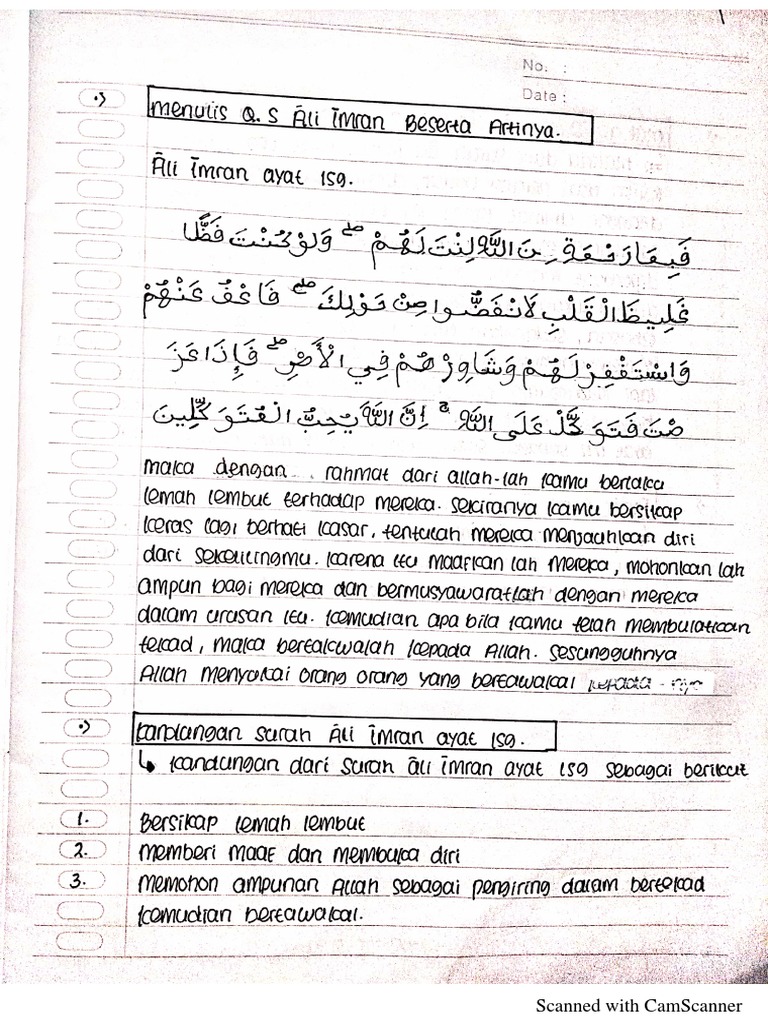 No. :
Date :
Menulis Q.S Āli Īmran Beserta Artinya.
Āli Īmran ayat 159.
فَبِمَا رَحْمَةٍ مِنَ اللَّهِ لِنْتَ لَهُمْ ۖ وَلَوْ كُنْتَ فَظًّا
غَلِيظَ الْقَلْبِ لَانْفَضُّوا مِنْ حَوْلِكَ ۖ فَاعْفُ عَنْهُمْ
وَاسْتَغْفِرْ لَهُمْ وَشَاوِرْهُمْ فِي الْأَمْرِ ۖ فَإِذَا عَزَ
مْتَ فَتَوَكَّلْ عَلَى اللَّهِ ۚ إِنَّ اللَّهَ يُحِبُّ الْمُتَوَكِّلِينَ
Maka dengan rahmat dari allah-lah kamu berlaku
lemah lembut terhadap mereka. sekiranya kamu bersikap
keras lagi berhati kasar, tentulah mereka menjauhkan diri
dari sekelilingmu. karena itu maafkan lah mereka, mohonkan lah
ampun bagi mereka dan bermusyawaratlah dengan mereka
dalam urusan itu. kemudian apa bila kamu telah membulatkan
tekad, maka bertakwalah kepada Allah. sesungguhnya
Allah menyukai orang orang yang bertawakal kepada-nya
kandungan surah Āli Īmran ayat 159.
↳ kandungan dari surah āli īmran ayat 159 sebagai berikut
1. Bersikap lemah lembut
2. memberi maaf dan membuka diri
3. memohon ampunan Allah sebagai pengiring dalam bertekad
kemudian bertawakal.
Scanned with CamScanner